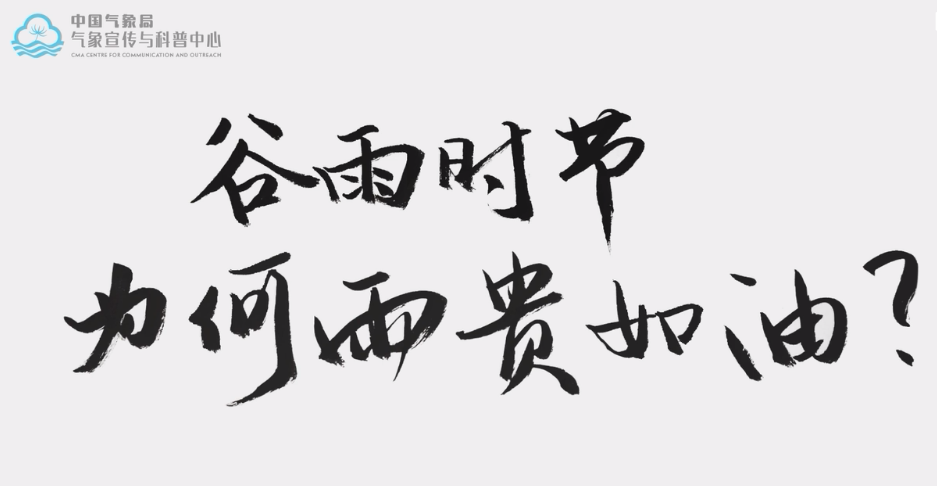 中国气象局
气象宣传与科普中心
CMA CENTRE FOR COMMUNICATION AND OUTREACH
谷雨时节
为何雨贵如油?